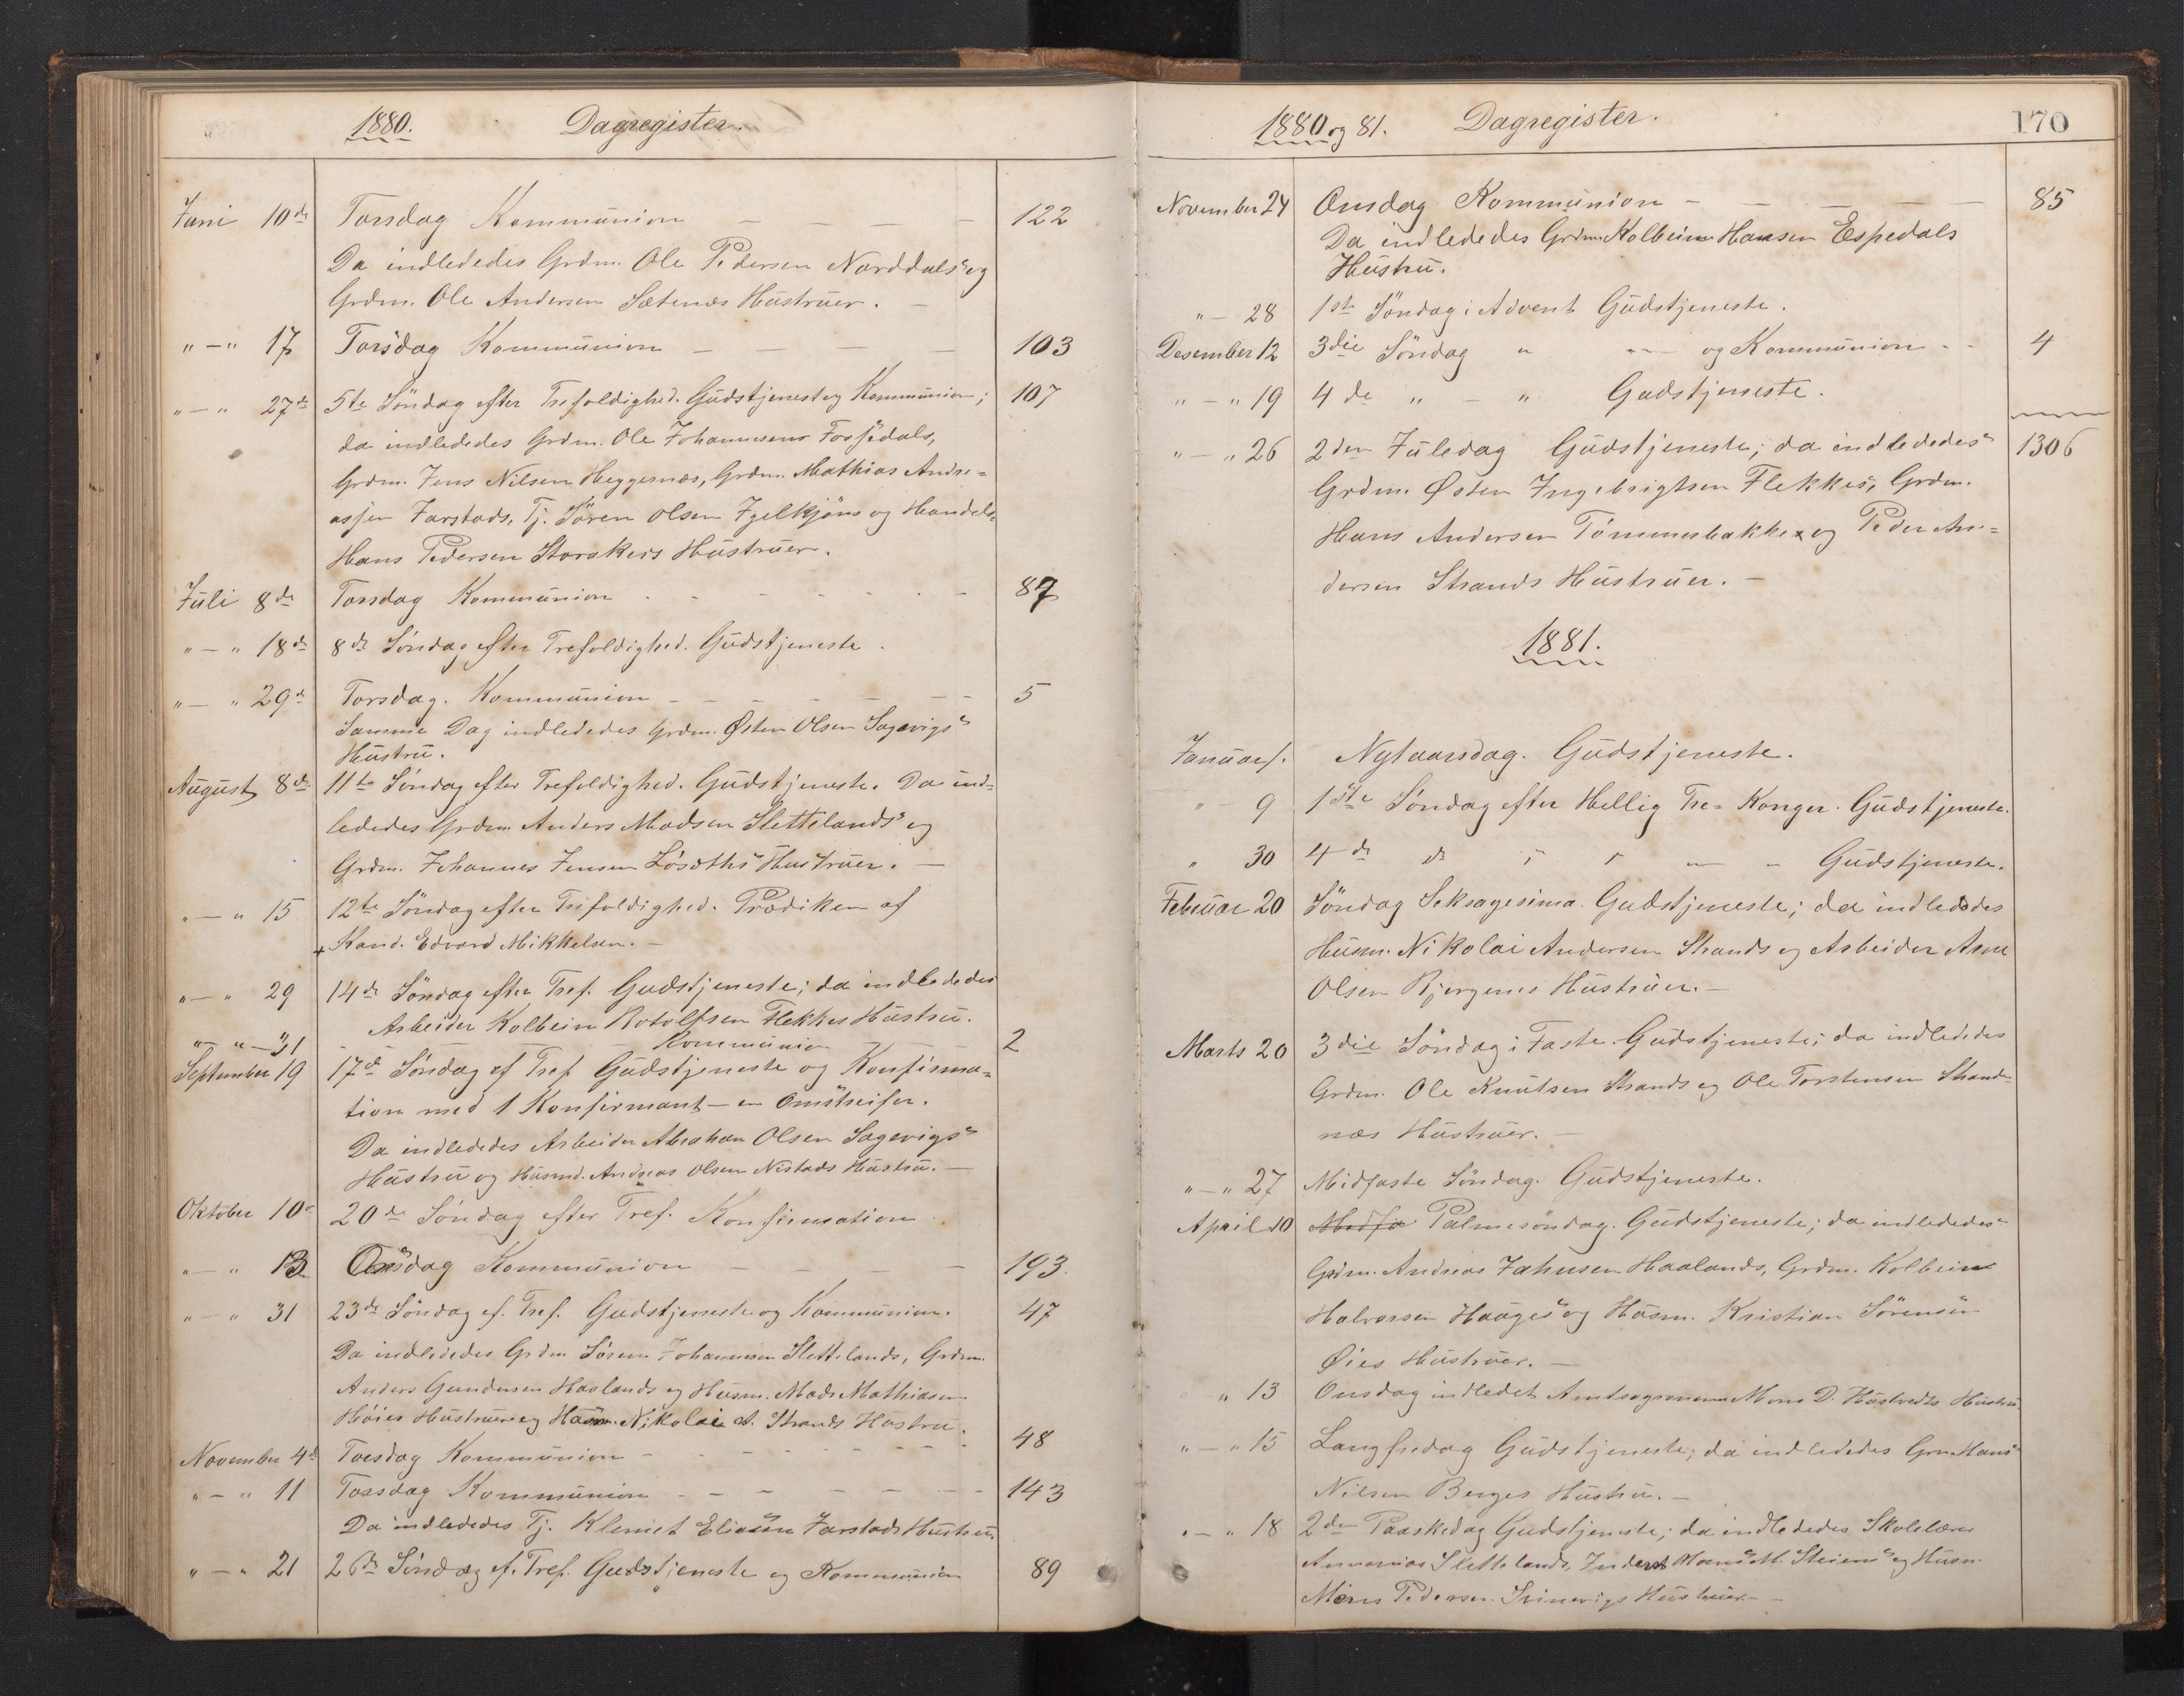 1880. Dagregister.
Juni 10de Torsdag Kommunion - - - 122
Da indlededes Grdm. Ole Pedersen Norddals og
Grdm. Ole Andersen Sætenes Hustruer. -
" - " 17 Torsdag Kommunion - - - - 103
" - " 27de 5te Søndag efter Trefoldighed. Gudstjenest og Kommunion; 107
da indlededes Grdm. Ole Johannesens Fossedals,
Grdm. Jens Nilsen Heggernæs, Grdm. Mathias Andre=
assen Jarstads, Tj. Søren Olsen Igelkjøns og Handels.
Hans Pedersen Storakers Hustruer.
Juli 8de Torsdag Kommunion - - - - - 87
" - " 18de 8de Søndag efter Trefoldighed. Gudstjeneste.
" - " 29de Torsdag. Kommunion - - - - - 5
Samme Dag indlededes Grdm. Østen Olsen Sagevigs
Hustru.
August 8de 11te Søndag efter Trefoldighed. Gudstjeneste. Da ind=
lededes Grdm. Anders Madsen Slettelands og
Grdm. Johannes Jensen Løsæths Hustruer. -
" - " 15 12te Søndag efter Trefoldighed. Prædiken af
+ Kand. Edvard Mikkelsen. -
" - " 29 14de Søndag efter Tref. Gudstjeneste; da indlededes
Arbeider Kolbein Rotolfsen Flekkes Hustru.
" - " - 31 - - - Kommunion - - 2
September 19 17de Søndag ef Tref Gudstjeneste og Konfirma=
tion med 1 Konfirmant - en Omstreifer.
Da indlededes Arbeider Abraham Olsen Sagevigs
Hustru og Husmd. Andreas Olsen Nistads Hustru. -
Oktober 10de 20de Søndag efter Tref. Konfirmation
" - " 13 Onsdag Kommunion - - - 193.
" - " 31 23de Søndag ef. Tref. Gudstjeneste og Kommunion. 47
Da indlededes Grdm Søren Johannesen Slettelands, Grdm.
Anders Gundersen Haalands og Husm. Mads Mathiasen
Høies Hustruer og Husm. Nikolai A. Strands Hustru.
November 4de Torsdag Kommunion - - - - - 48
" - " 11 Torsdag Kommunion - - - - - - 143
Da indlededes Tj. Klemet Eliasen Jarstads Hustru.
" - " 21 26de Søndag ef. Tref. Gudstjeneste og Kommunion 89
1880 og 81. Dagregister. 170
November 24 Onsdag Kommunion - - - - 85
Da indlededes Grdm Kolbein Hansen Espedals
Hustru.
" - 28 1ste Søndag i Advent Gudstjeneste.
Desember 12 3die Søndag " " - og Kommunion - - 4
" - " 19 4de " - " Gudstjeneste.
" - " 26 2den Juledag Gudstjeneste; da indlededes 1306
Grdm. Østen Ingebrigtsen Flekkes, Grdm.
Hans Andersen Tømmerbakke og Peder An=
dersen Strands Hustruer. -
1881.
Januar 1. Nytaarsdag. Gudstjeneste.
" - 9 1ste Søndag efter Hellig Tre= Konger. Gudstjeneste.
" 30 4de do " " - " Gudstjeneste.
Februar 20 Søndag Seksagesima. Gudstjeneste; da indlededes
Husm. Nikolai Andersen Strands og Arbeider Arne
Olsen Bjergenes Hustruer. -
Marts 20 3die Søndag i Faste Gudstjeneste; da indlededes
Grdm. Ole Knutsen Strands og Ole Torstensen Strand=
næs Hustruer. -
" - " 27 Midfaste Søndag. Gudstjeneste.
April 10 Midfa Palmesøndag. Gudstjeneste; da indlededes
Grdm. Andreas Jahnsen Haalands, Grdm. Kolbein
Halvorsen Hauges og Husm. Kristian Sørensen
Øies Hustruer. -
" 13 Onsdag indledet Mons D. Hustru
" - " 15 Langfredag Gudstjeneste; da indlededes Grm Hans
Nilsen Berges Hustru. -
" - " 18 2den Paaskedag Gudstjeneste; da indlededes Skolelærer
Annanias Slettelands, Inderst Hans M. Steiens og Husm.
Mons Pedersen Svinevigs Hustruer. -